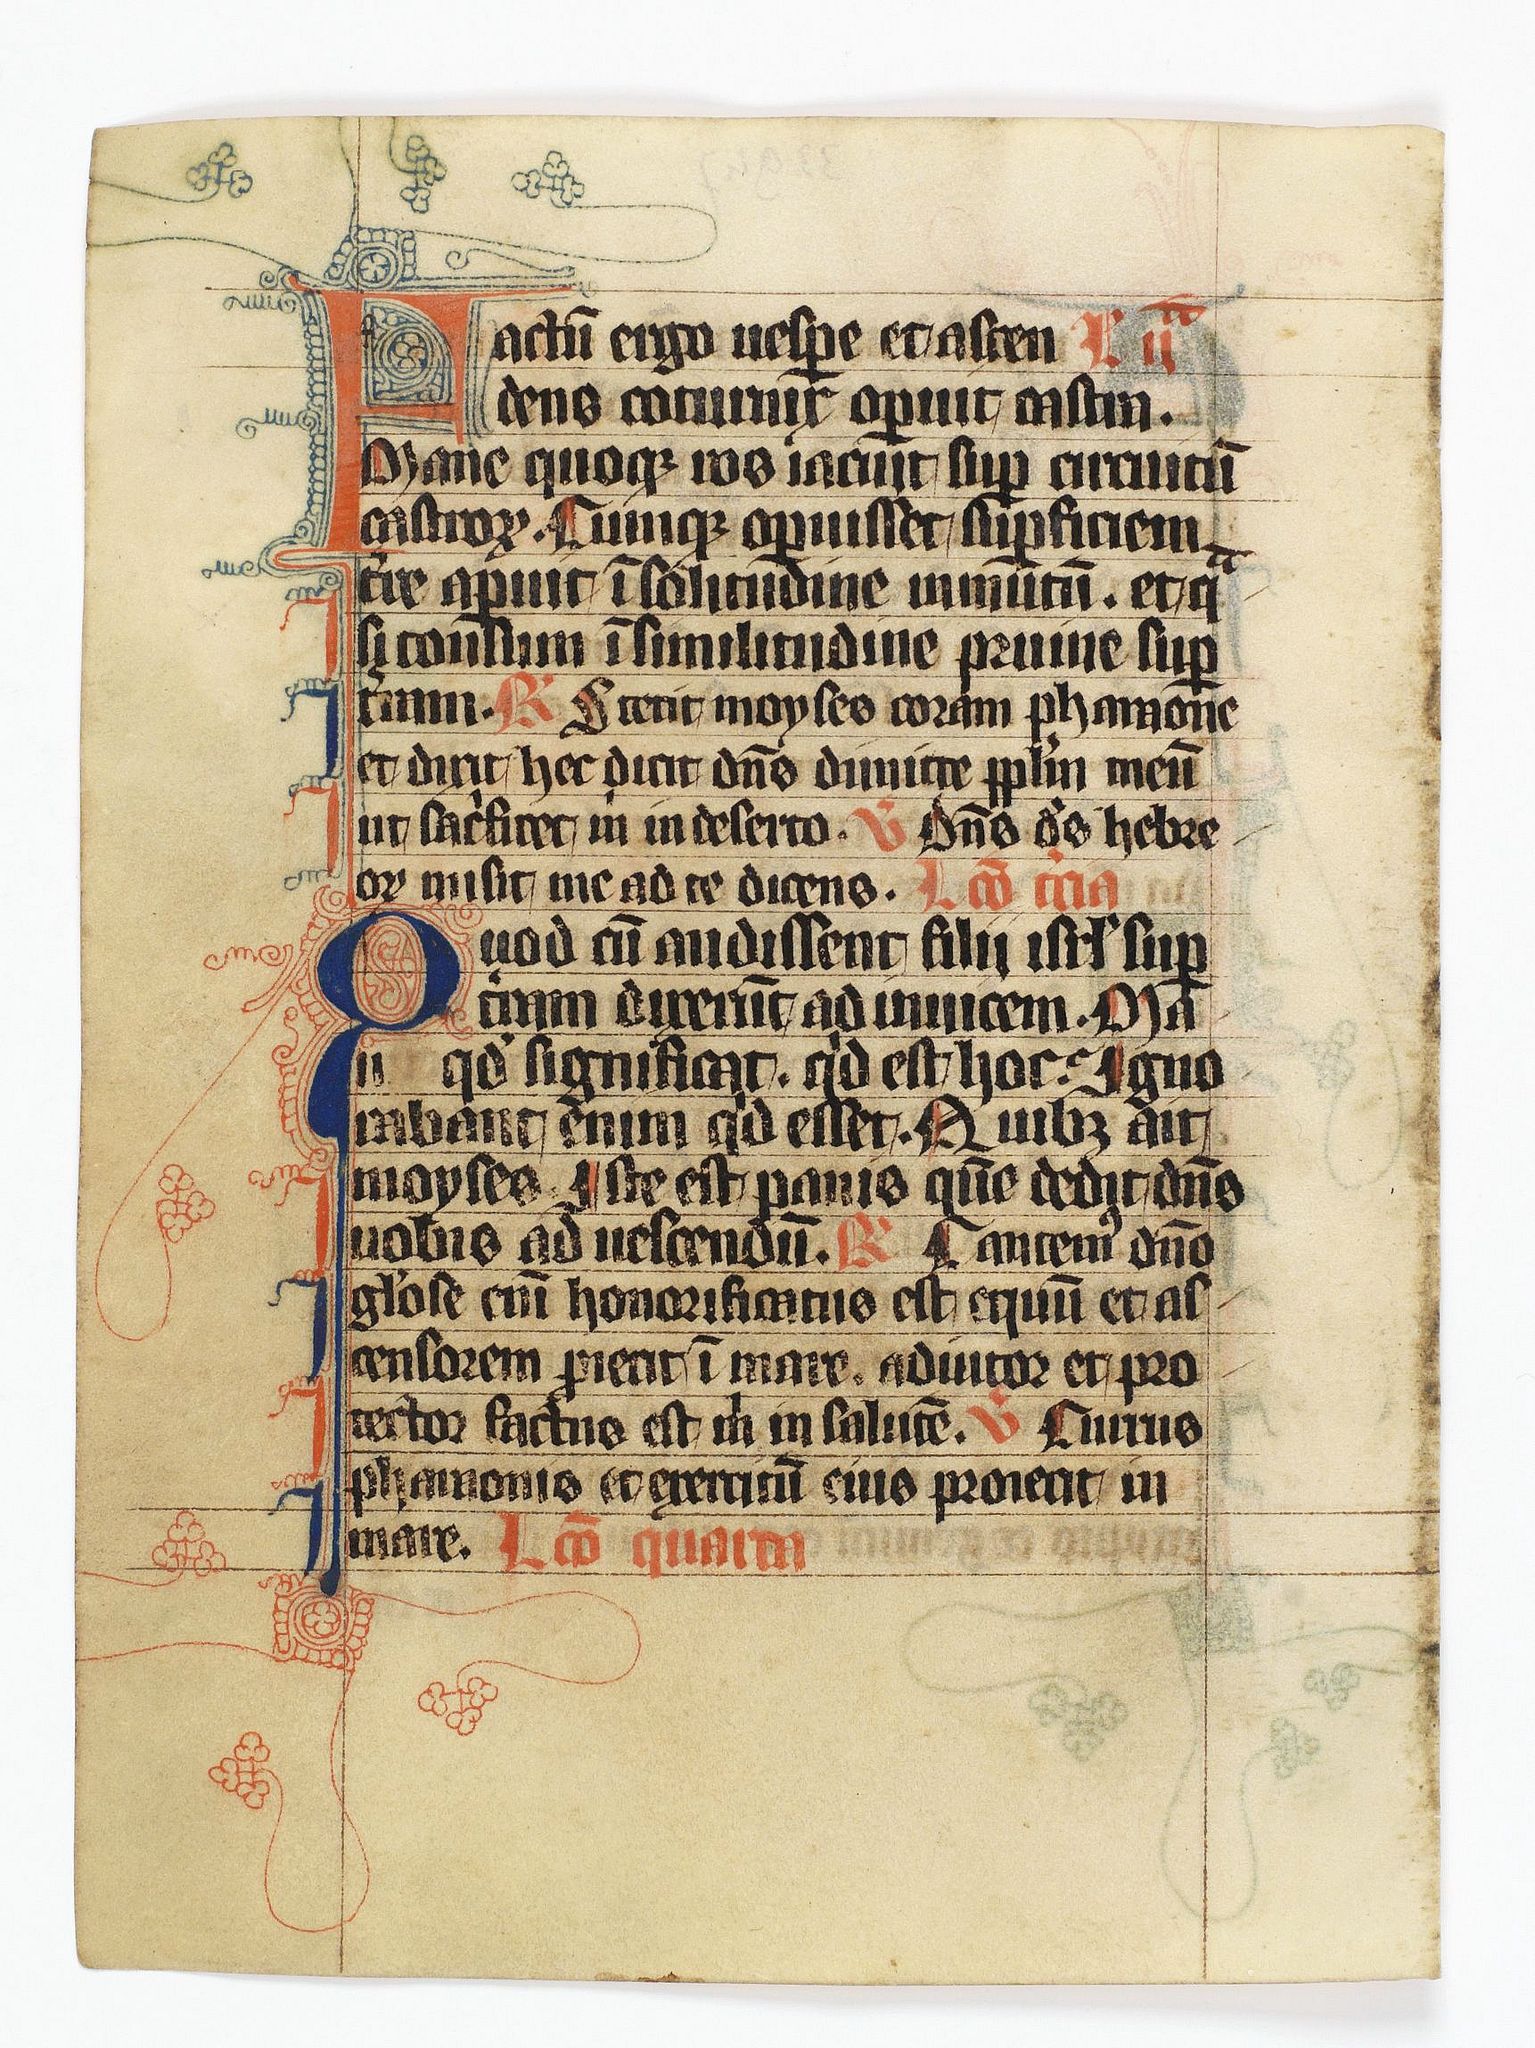 Factū ergo uesp̄e et ascen L ij
dens coturnix op̄uit castra.
Mane quoqꝫ ros iacuit sup̄ circuitū
castroꝝ. Cumqꝫ op̄uisset sup̄ficiem
t̄re ap̄uit ī solitudine minutū. et q
si tonsum ī similitudine pruine sup̄
t̄ram. ℟ Stetit moyses coram pharaone
et dixit hec dicit dn̄s dimitte pplm̄ meū
ut sac̄ficet m̄ in deserto. ℣ Dn̄s ds̄ hebre
oꝝ misit me ad te dicens. Lcō t̄cia
Quod cū audissent filij isrl̄ sup̄
t̄ram dixerūt ad inuicem. Mā
u qd̄ significat. qd̄ est hoc. Igno
rabant enim qd̄ esset. Quibꝫ ait
moyses. Iste est panis que᷒ dedit dn̄s
uobis ad uescendū. ℟ Cantemꝰ dn̄o
gl̄ose eni᷒ honorificatus est equū et as
censorem ꝓiecit ī mare. adiutor et pro
tector factus est m̄ in salutē. ℣ Currus
pharaonis et exercitū eius proiecit in
mare. Lcō quarta